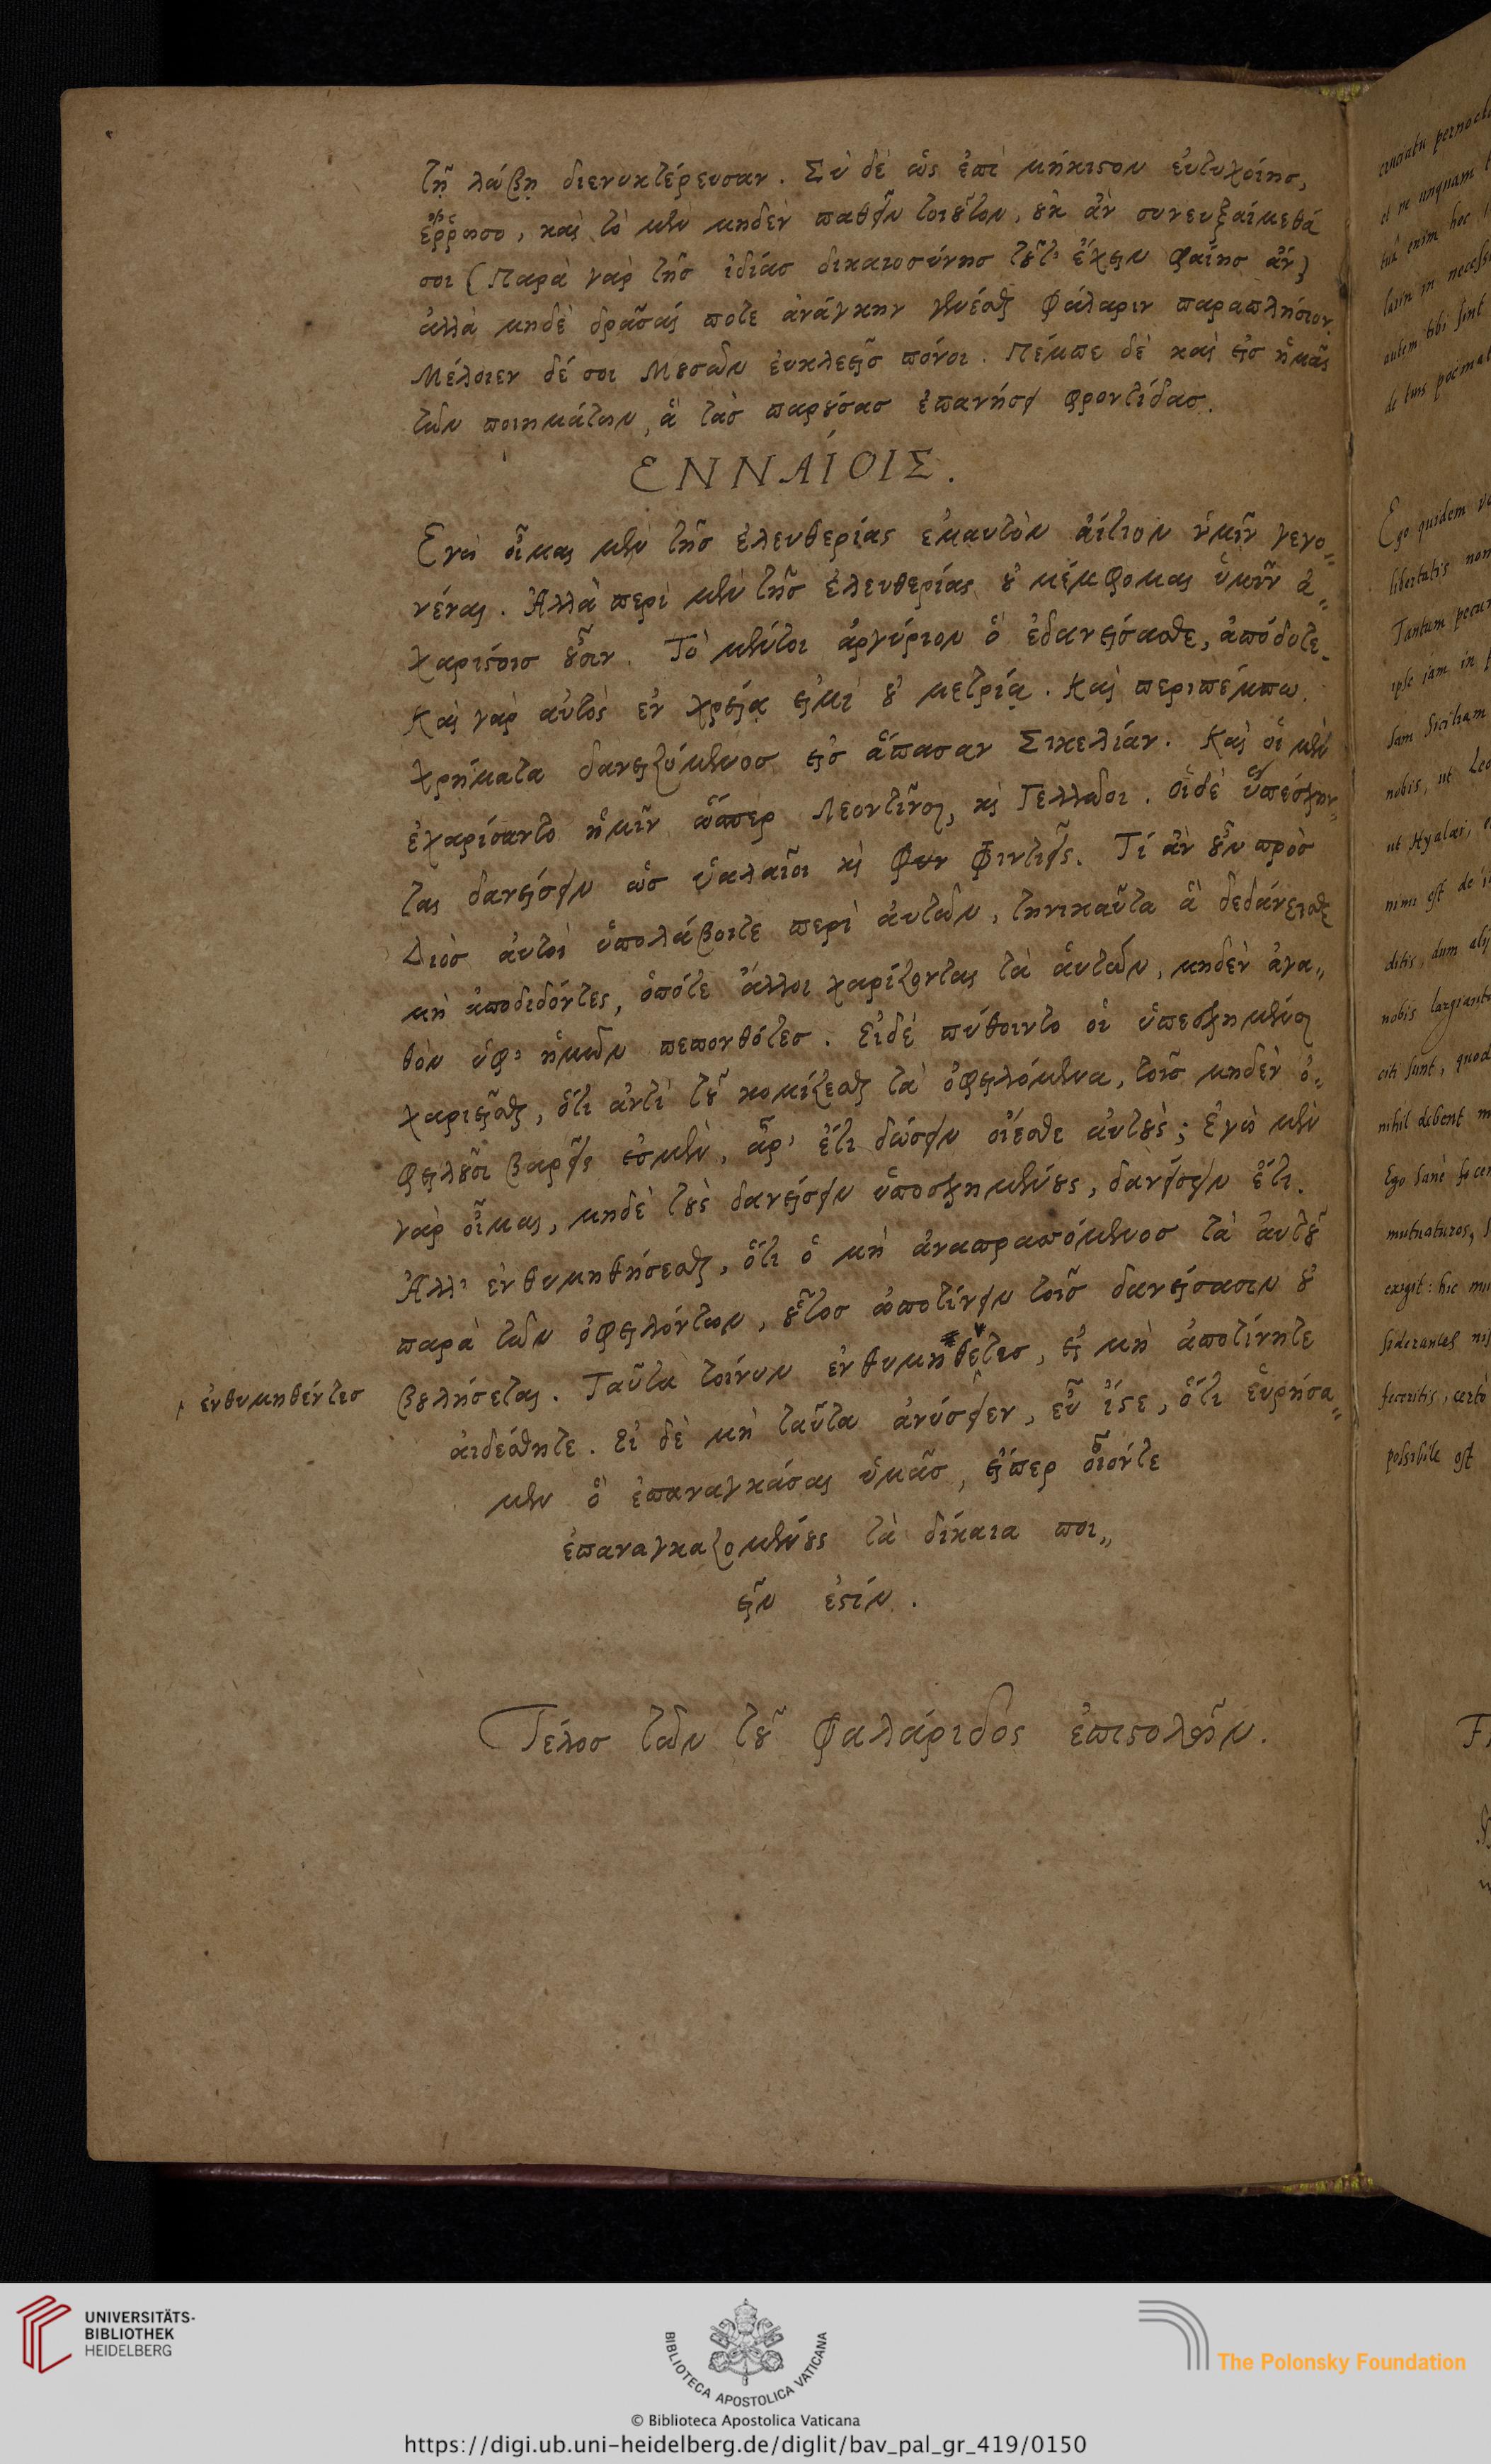 τῇ λάβῃ διενυκτέρευσαν. Σὺ δὲ ὡς ἐπὶ μήκιστον ἐυτυχοίης,
ἔρρωσο, καὶ τὸ μὲν μηδὲν παθεῖν τοιοῦτον, οὐκ ἂν συνευξαίμεθά
σοι (Παρὰ γὰρ τῆς ἰδίας δικαιοσύνης τοῦτ' ἔχειν φαίης ἄν)
ἀλλὰ μηδὲ δρᾶσαί ποτε ἀνάγκην γενέσθαι Φάλαριν παραπλήσιον.
Μέλοιεν δέ σοι Μουσῶν ἐυκλεεῖς πόνοι. Πέμπε δὲ καὶ εἰς ἡμᾶς
τῶν ποιημάτων, ἃ τὰς παρούσας ἐπανήσει φροντίδας.
ΕΝΝΑΊΟΙΣ.
Εγὼ οἶμαι μὲν τῆς ἐλευθερίας εμαυτὸν ἀίτιον ὑμῖν γεγο„
νέναι. Ἀλλὰ περὶ μὲν τῆς ἐλευθερίας οὐ μέμφομαι ὑμῖν ἀ„
χαρίστοις οὖσιν. Τὸ μέντοι ἀργύριον ὃ ἐδανείσασθε, ἀπόδοτε.
Καὶ γὰρ αὐτὸς ἐν χρείᾳ εἰμὶ οὐ μετρίᾳ. Καὶ περιπέμπω
χρήματα δανειζόμενος εἰς ἅπασαν Σικελίαν. Καὶ οἱ μὲν
ἐχαρίσαντο ἡμῖν ὥσπερ Λεοντῖνοι, καὶ Γελλῶοι. Οἱδὲ ὑπέσχην„
ται δανείσειν ὡς ὑαλαῖοι καὶ Φιντιεῖς. Τί ἂν οὖν πρὸς
Διὸς ἀυτοὶ ὑπολάβοιτε περὶ ἀυτῶν, τηνικαῦτα ἃ δεδάνεισθε
μὴ ἀποδιδόντες, ὁπότε ἄλλοι χαρίζονται τὰ ἁυτῶν, μηδὲν ἀγα„
θὸν ὑφ' ἡμῶν πεπονθότες. Εἰδὲ πύθοιντο οἱ ὑπεσχημένοι
χαριεῖσθαι, ὅτι ἀντὶ τοῦ κομίζεσθαι τὰ ὀφειλόμενα, τοῖς μηδὲν ὀ„
φείλουσι βαρεῖς ἐσμὲν, ἆρ' ἔτι δώσειν οἴεσθε ἀυτοὺς; Ἐγὼ μὲν
γὰρ οἶμαι, μηδὲ τοὺς δανείσειν ὑποσχημένους, δανείσειν ἔτι.
Ἀλλ' ἐνθυμηθήσεσθαι, ὅτι ὁ μὴ ἀναπραττόμενος τὰ ἁυτοῦ
παρὰ τῶν ὀφειλόντων, οὗτος ἀποτίνειν τοῖς δανείσασιν οὐ
βουλήσεται. Ταῦτα τοίνυν ἐνθυμηθέτες, εἰ μὴ ἀποτίνητε
ἐνθυμηθέντες
αἰδέσθητε. Εἰ δὲ μὴ ταῦτα ἀνύσειεν, εὖ ἴστε, ὅτι ἑυρήσο„
μεν ὃ ἐπαναγκάσαι ὑμᾶς, εἴπερ οἷόντε
ἐπαναγκαζομένους τὰ δίκαια ποι„
εῖν ἐστίν.
Τέλος τῶν τοῦ Φαλάριδος ἐπιστολῶν.
Ego quidem
libertatis non
Tantum
ipse jam in
nobis, ut
ut Hyalaei,
nimi est de
ditis, dum alij
nobis
citi sunt, quod
nihil debent
Ego sanè
mutuaturos,
exigit: hic
feceritis, certè
possibile est
UNIVERSITÄTS-
BIBLIOTHEK
HEIDELBERG
BIBLIOTECA APOSTOLICA VATICANA
The Polonsky Foundation
© Biblioteca Apostolica Vaticana
https://digi.ub.uni-heidelberg.de/diglit/bav_pal_gr_419/0150